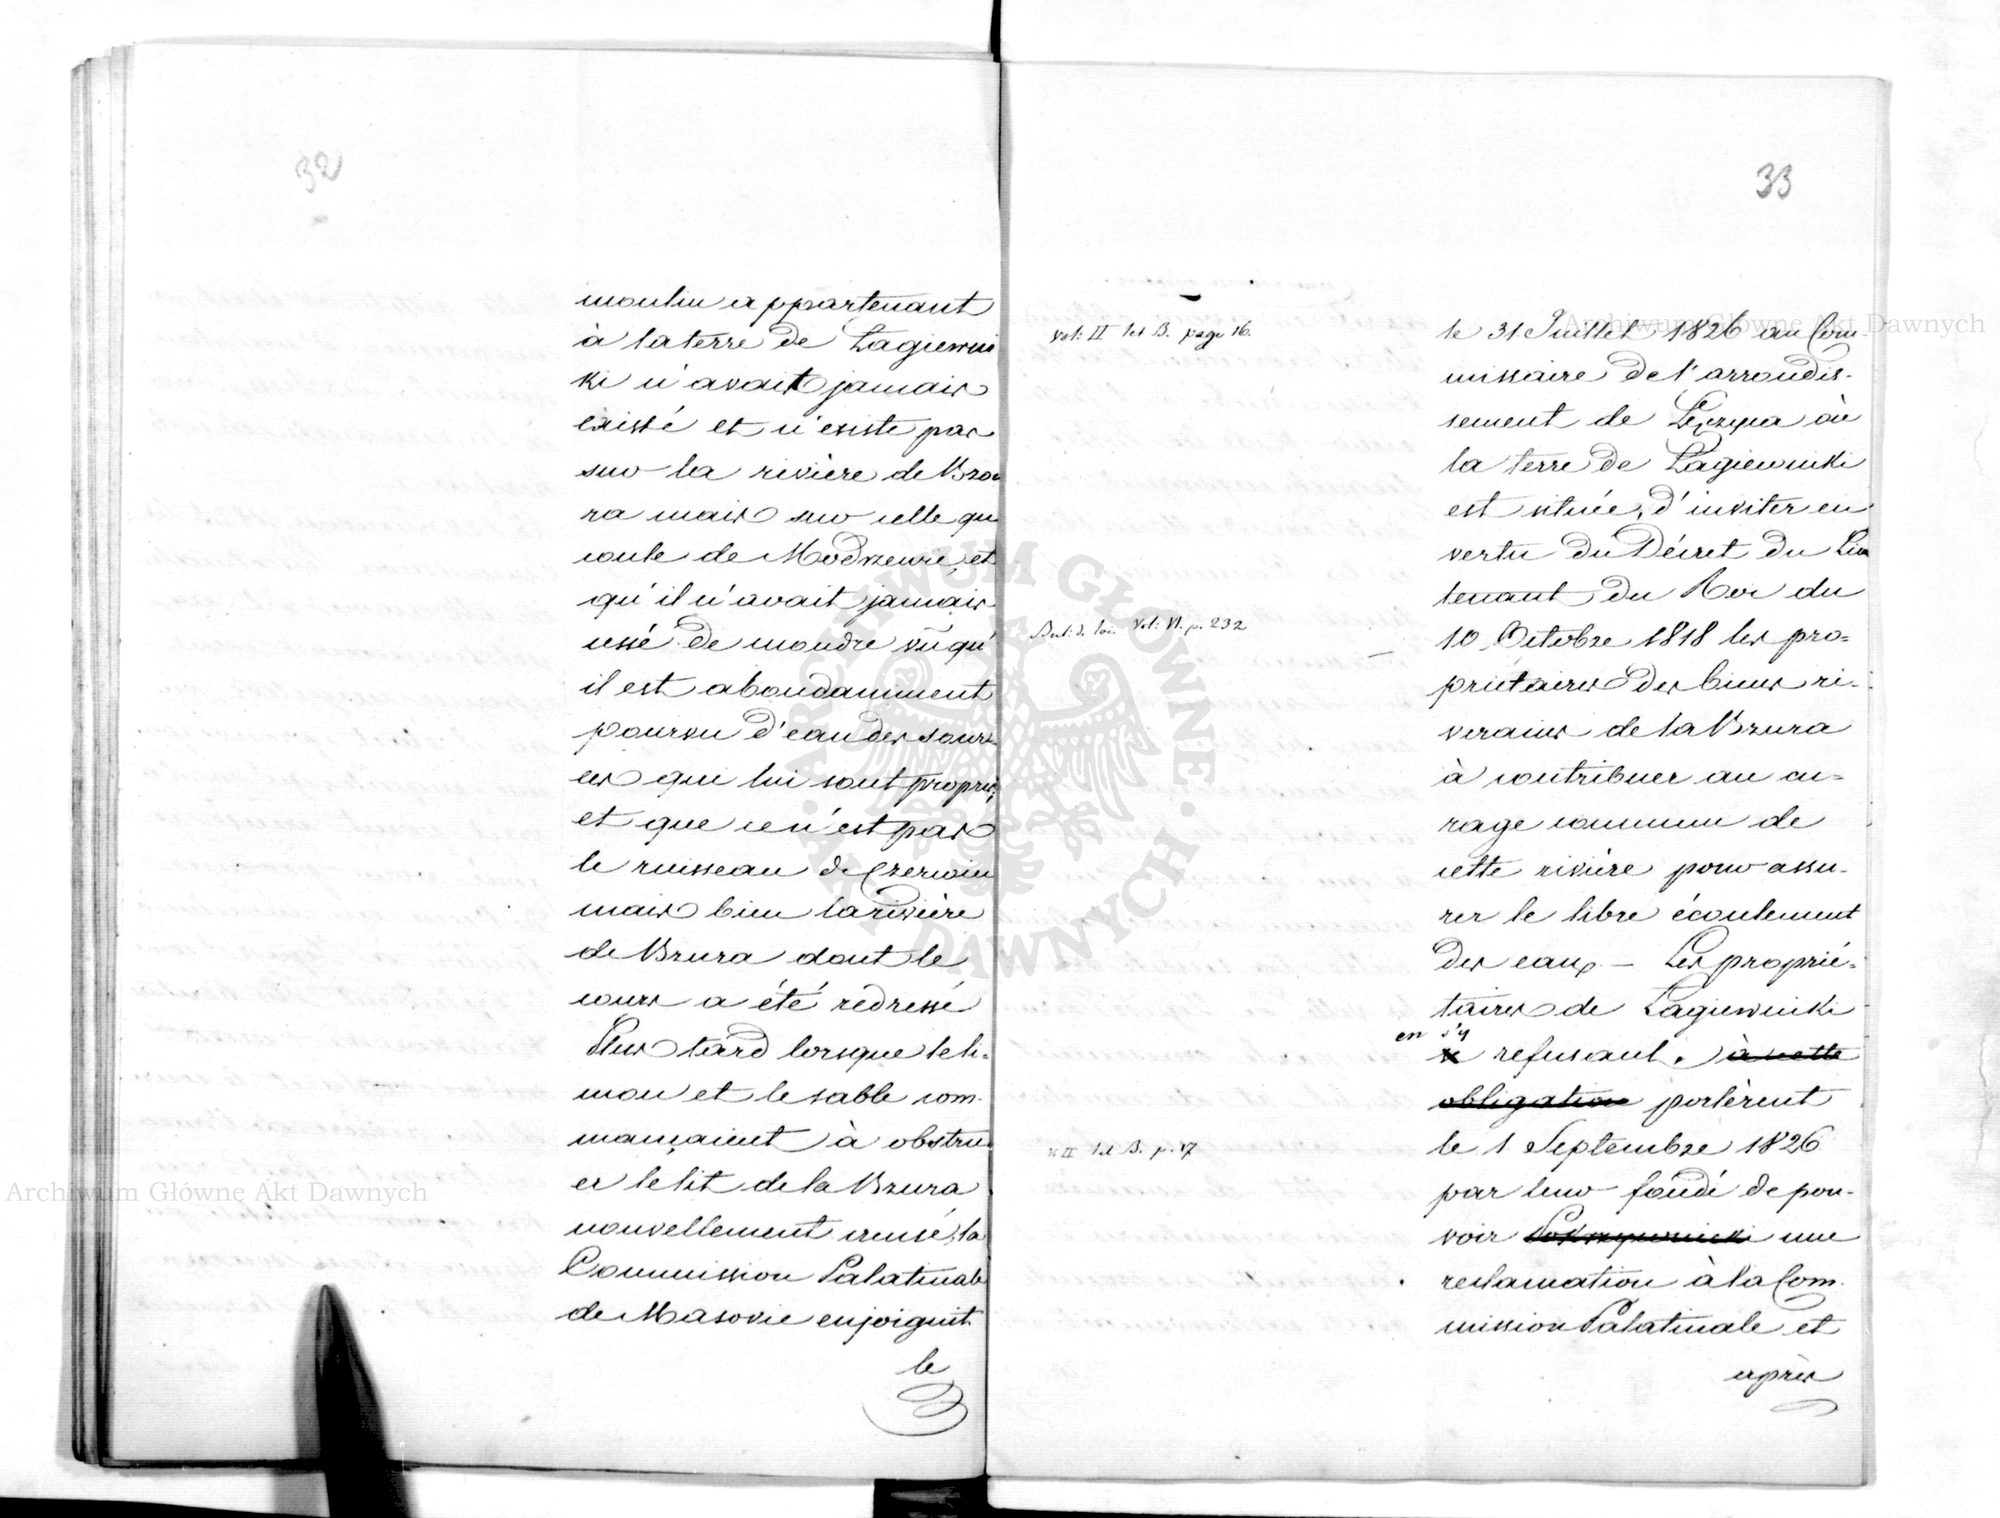 32
moulin appartenant
à la terre de Łagiewni
ki n'avait jamais
existé et n'existe pas
sur la rivière de Bzou
ra mais sur celle qui
coule de Modrzewie, et
qu'il n'avait jamais
cessé de moudre vû qu'
il est abondamment
pourvu d'eau des sour-
ces qui lui sont propres,
et que ce n'est pas
le ruisseau de
mais bien la rivière
de Bzura dont le
cours a été redressé
Plus tard lorsque le li-
mon et le sable com-
mançaient à obstru-
er le lit de la Bzura
nouvellement creusé, la
Commission Palatinale
de Masovie enjoignit
le
33
vol: II lit B. page 16.
le 31 Juillet 1826 au Com-
missaire de l'arrondis-
sement de Łęczyca où
la terre de Łagiewniki
est située, d'inviter en
vertu du Décret du Lieu
tenant du Roi du
Bul: d. loi. Vol: VI. p. 232
10 Octobre 1818 les pro-
priétaires des biens ri-
verains de la Bzura
à contribuer au cu-
rage commun de
cette rivière pour assu-
rer le libre écoulement
des eaux — Les proprié-
taires de Łagiewniki
en s'y
refusant à cette
obligation portèrent
v II lit B. p. 17
le 1 Septembre 1826
par leur fondé de pou-
voir une
reclamation à la Com-
mission Palatinale et
après
Archiwum Główne Akt Dawnych
Archiwum Główne Akt Dawnych
ARCHIWUM GŁÓWNE · AKT DAWNYCH ·